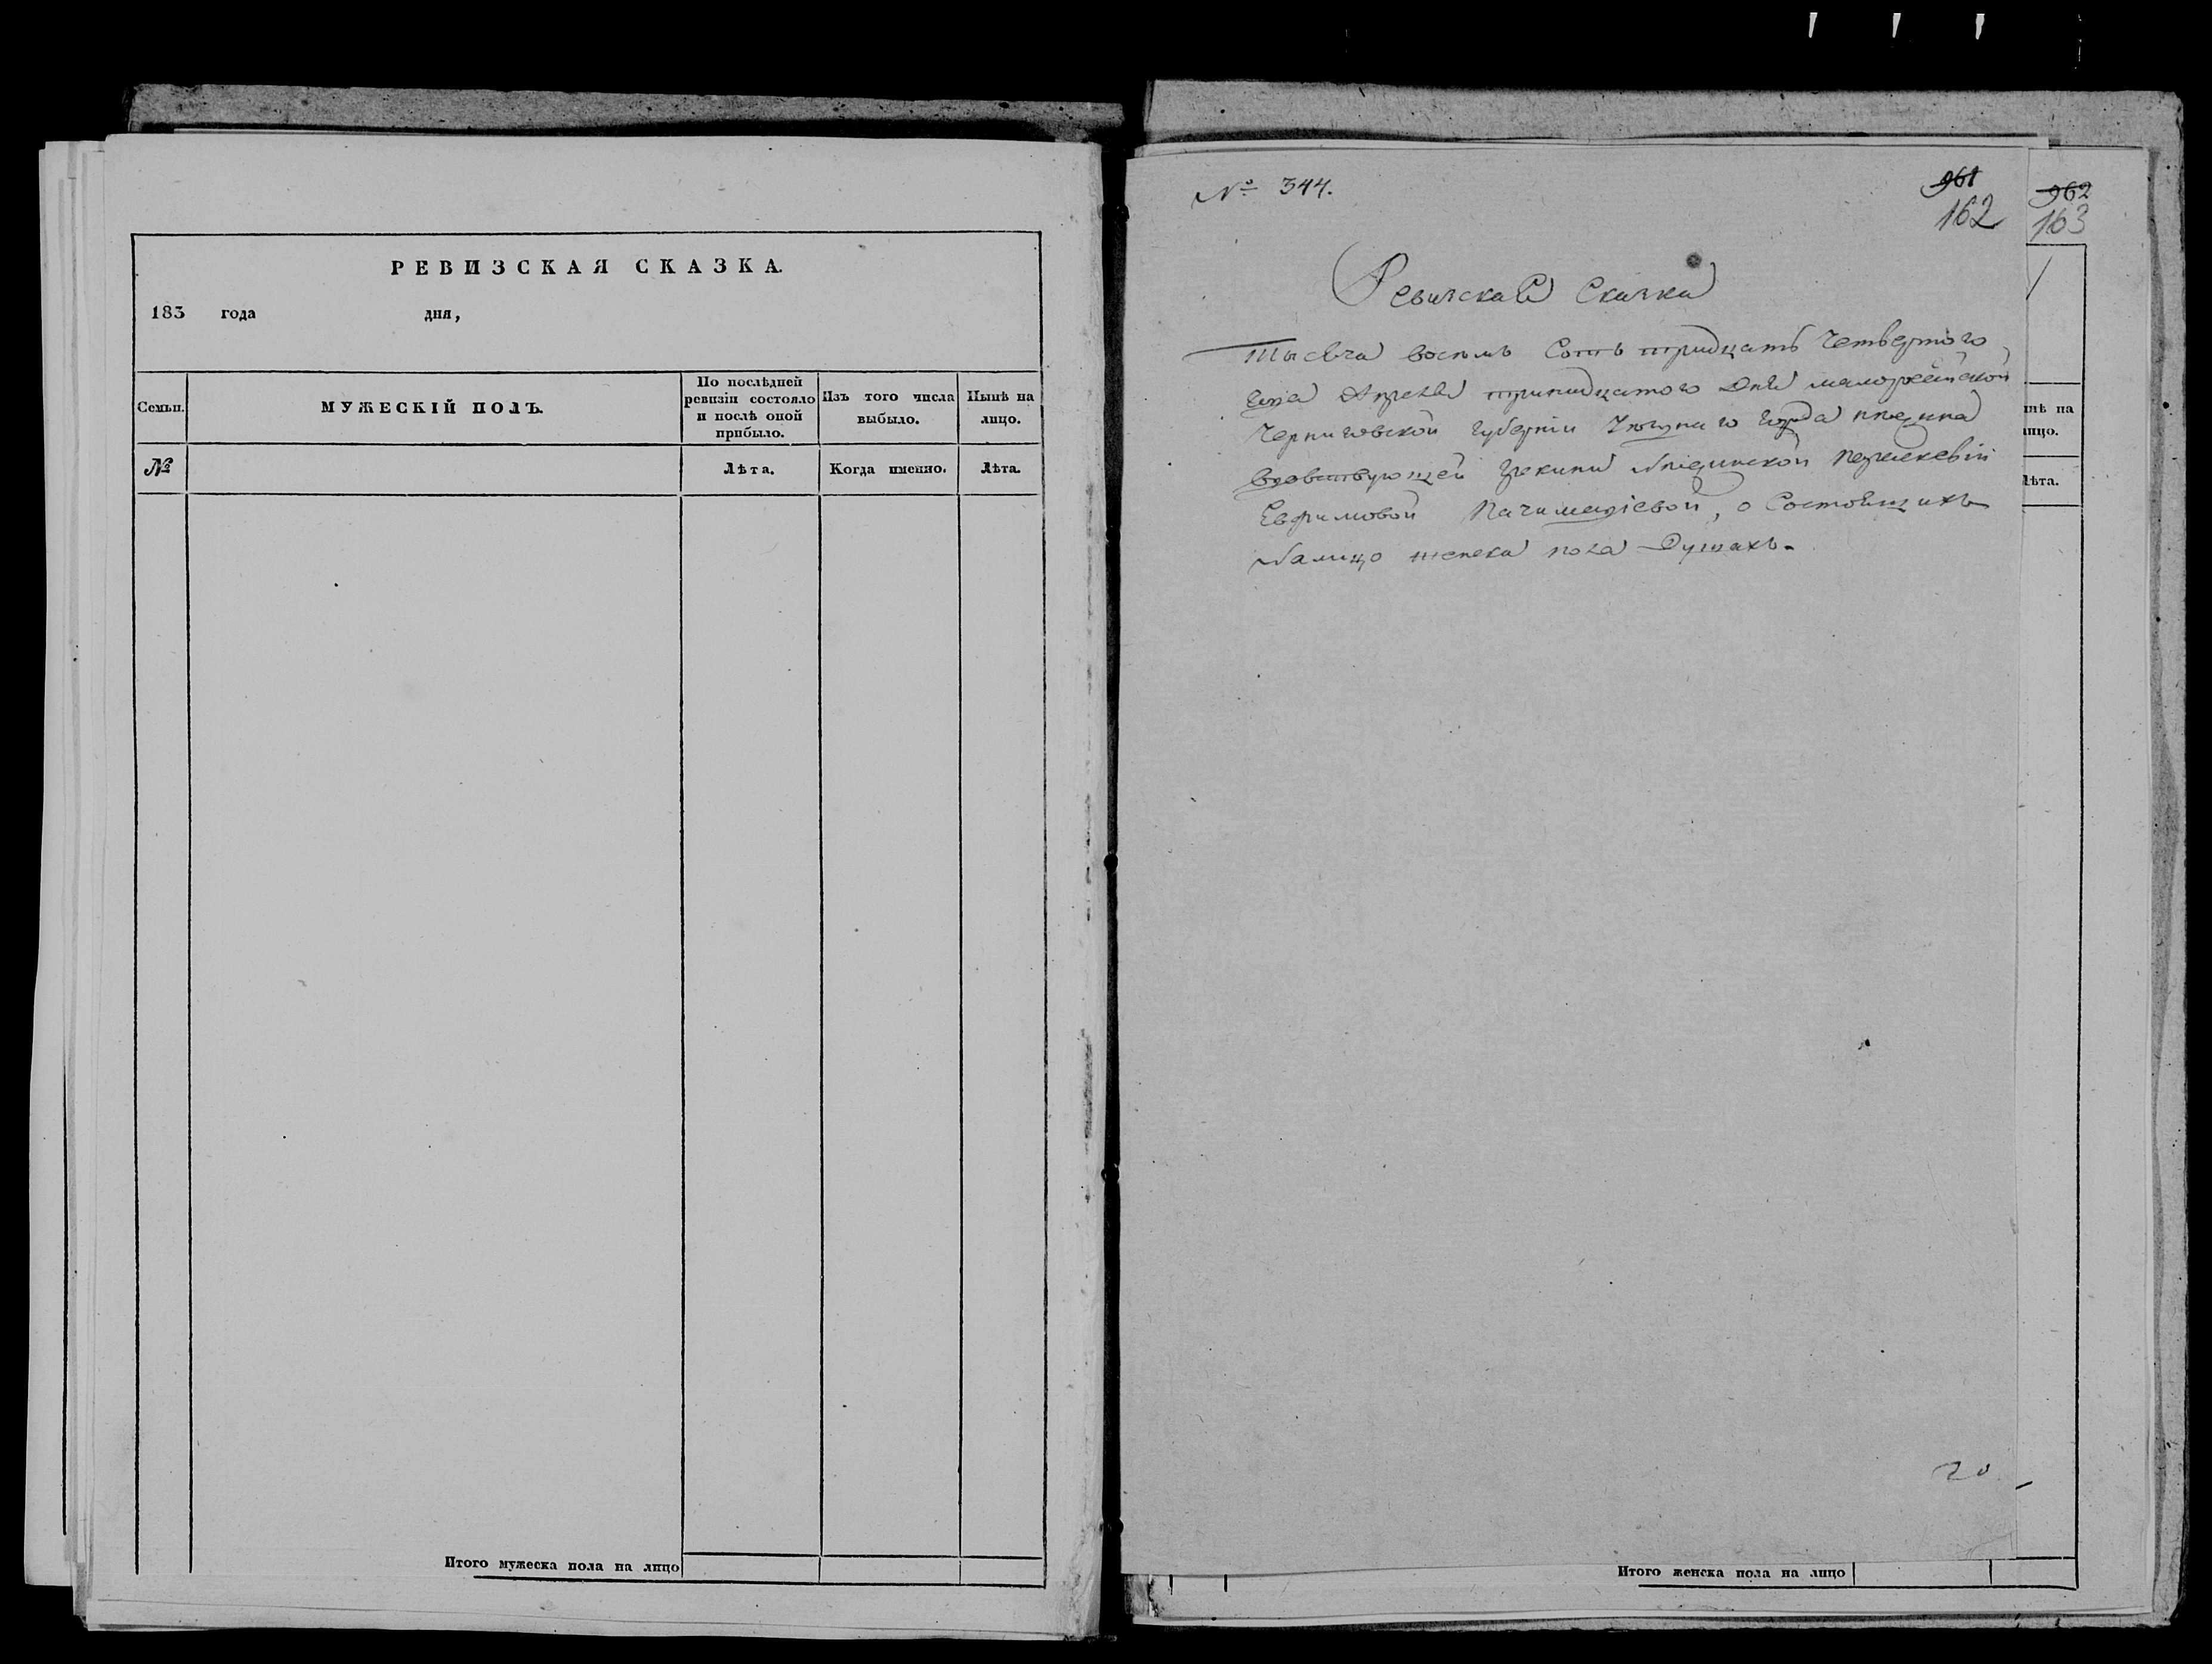 РЕВИЗСКАЯ СКАЗКА.
183 года дня,
Семьи.
МУЖЕСКІЙ ПОЛЪ.
По послѣдней
ревизіи состояло
и послѣ оной
прибыло.
Изъ того числа
выбыло.
Нынѣ на
лицо.
№
Лѣта.
Когда именно.
Лѣта.
Итого мужеска пола на лицо
№ 344.
961
162
962
163
Ревизская Сказка
Тысяча восемь Сотъ тридцать Четвертого
года Апреля тринадцатого Дня малороссійской
Черниговской губерніи города нежина
вдовствующей грекини нежинской Параскевіи
Ефимовой, о Состоящихъ
налицо женска пола Душахъ.
нѣ на
лицо.
Лѣта.
20
Итого женска пола на лицо